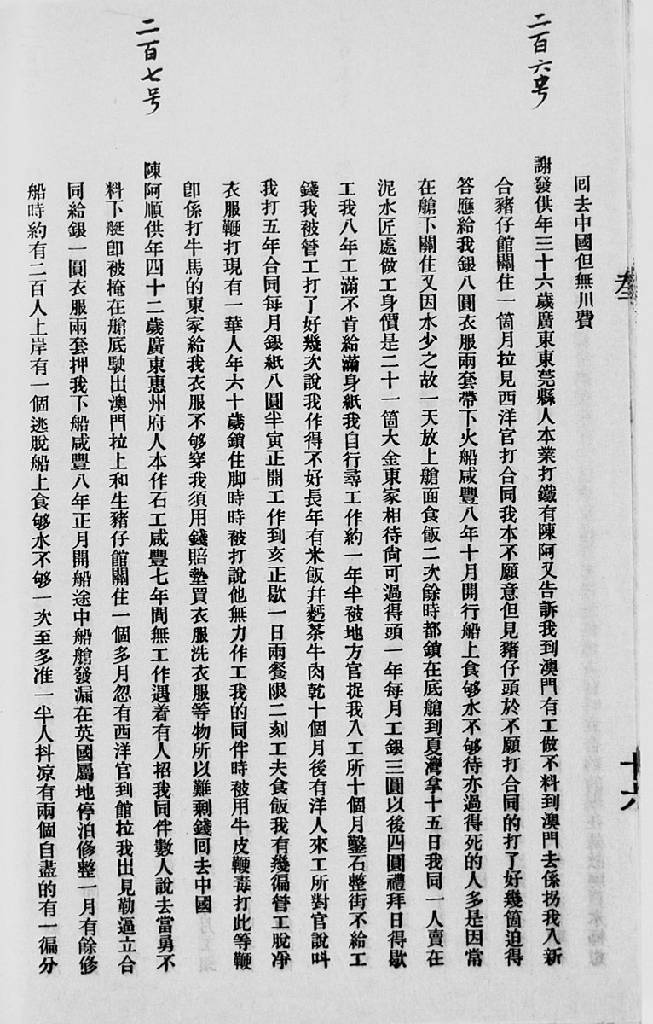 二百六号
二百七号
回去中國但無川費
謝發供年三十六歲廣東東莞縣人本業打鐵有陳阿又告訴我到澳門有工做不料到澳門去係拐我入新
合豬仔館關住一箇月拉見西洋官打合同我本不願意但見豬仔頭於不願打合同的打了好幾箇迫得
答應給我銀八圓衣服兩套帶下火船咸豐八年十月開行船上食够水不够待亦過得死的人多是因常
在艙下關住又因水少之故一天放上艙面食飯二次餘時都鎖在底艙到夏灣拿十五日我同一人賣在
泥水匠處做工身價是二十一箇大金東家相待尙可過得頭一年每月工銀三圓以後四圓禮拜日得歇
工我八年工滿不肯給滿身紙我自行尋工作約一年半被地方官捉我入工所十個月鑿石整街不給工
錢我被管工打了好幾次說我作得不好長年有米飯幷麪茶牛肉乾十個月後有洋人來工所對官說呌
我打五年合同每月銀紙八圓半寅正開工作到亥正歇一日兩餐限二刻工夫食飯我有幾徧管工脫凈
衣服鞭打現有一華人年六十歲鎖住脚時時被打說他無力作工我的同伴時被用牛皮鞭毒打此等鞭
卽係打牛馬的東家給我衣服不够穿我須用錢賠墊買衣服洗衣服等物所以難剩錢回去中國
陳阿順供年四十二歲廣東惠州府人本作石工咸豐七年間無工作遇着有人招我同伴數人說去當勇不
料下艇卽被掩在艙底駛出澳門拉上和生豬仔館關住一個多月忽有西洋官到館拉我出見勒逼立合
同給銀一圓衣服兩套押我下船咸豐八年正月開船途中船艙發漏在英國屬地停泊修整一月有餘修
船時約有二百人上岸有一個逃脫船上食够水不够一次至多准一半人抖凉有兩個自盡的有一徧分
十六